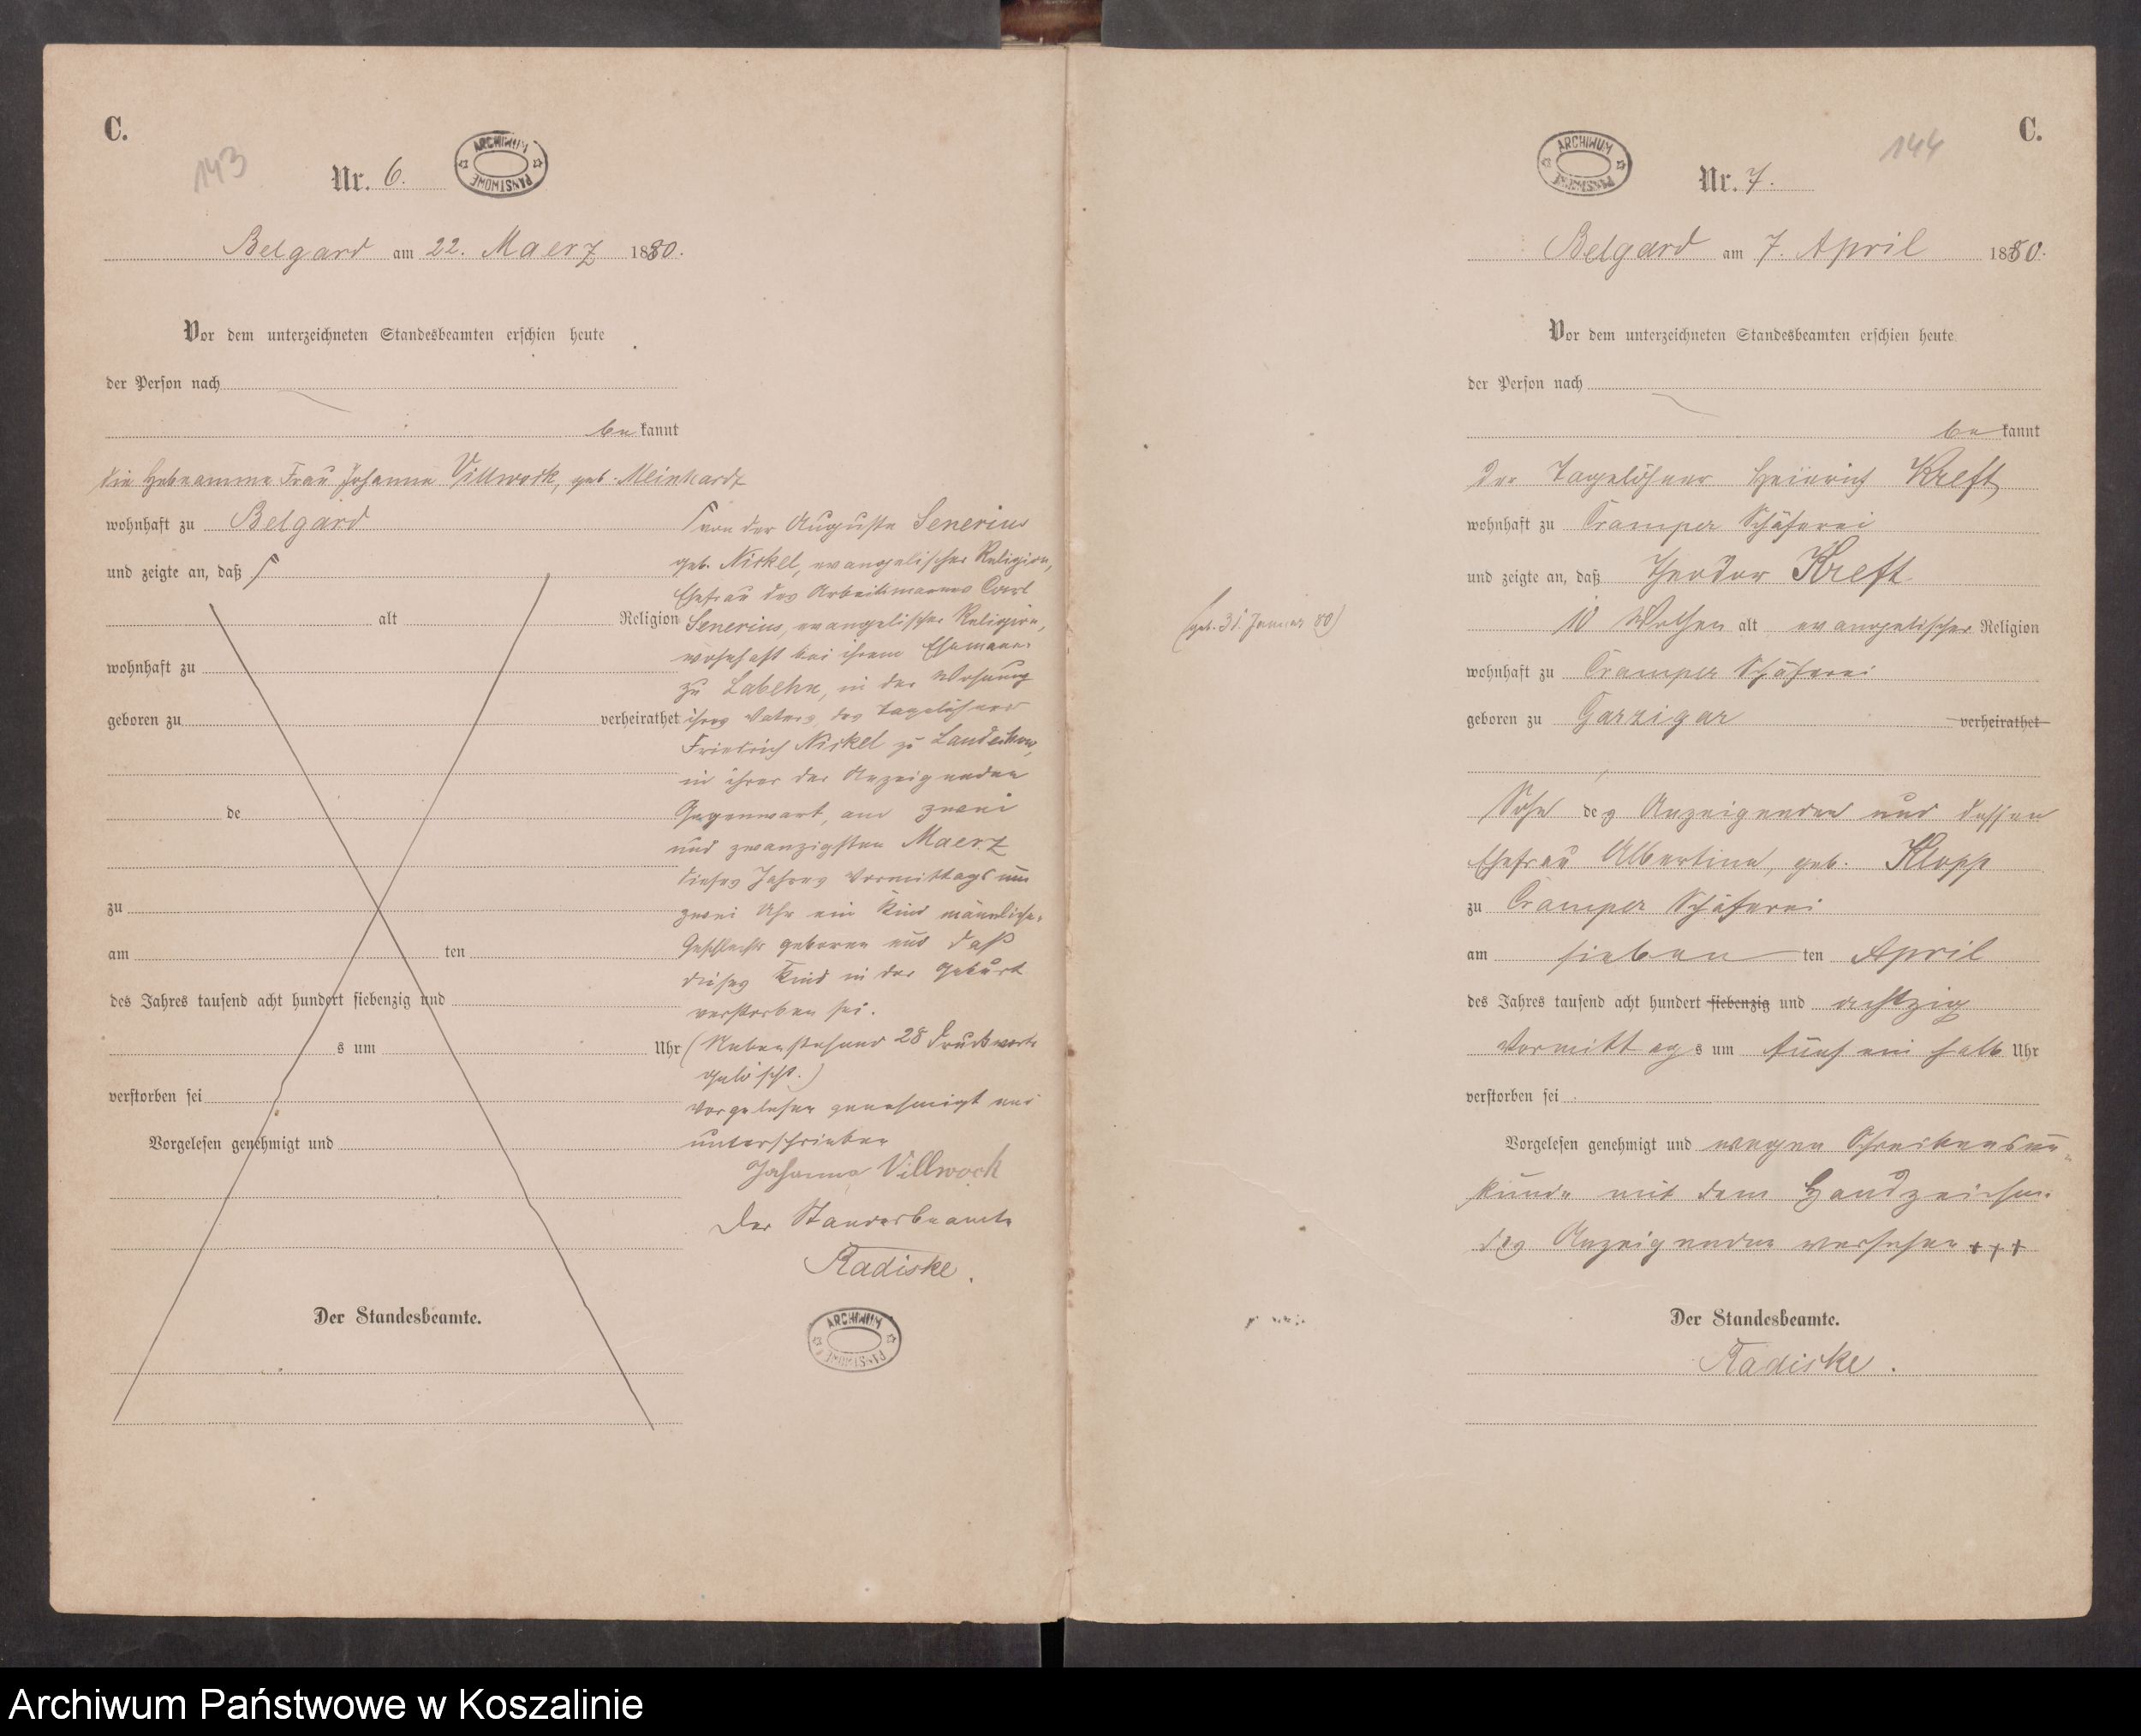 C.
143
Nr. 6.
ARCHIWUM PAŃSTWOWE
Belgard am 22. Maerz 1880.
Vor dem unterzeichneten Standesbeamten erschien heute
der Person nach
be kannt
die Hebeamme Frau Johanna Villwock, geb. Meinhardt
wohnhaft zu Belgard
und zeigte an, daß
alt Religion
wohnhaft zu
geboren zu verheirathet
de
zu
am ten
des Jahres tausend acht hundert siebenzig und
s um Uhr
verstorben sei
Vorgelesen genehmigt und
Der Standesbeamte.
von der Auguste Senerius
geb. Nickel, evangelischer Religion,
Ehefrau des Arbeitsmannes Carl
Senerius, evangelischer Religion,
wohnhaft bei ihrem Ehemann
zu Labehn, in der Wohnung
ihres Vaters, des Tagelöhners
Friedrich Nickel zu Landechow,
in ihrer der Anzeigenden
Gegenwart, am zwei
und zwanzigsten Maerz
dieses Jahres Vormittags um
zwei Uhr ein Kind männlichen
Geschlechts geboren und daß
dieses Kind in der Geburt
verstorben sei.
(Nebenstehend 28 Druckworte
gelöscht.)
Vorgelesen genehmigt und
unterschrieben
Johanna Villwock
Der Standesbeamte
Radiske.
ARCHIWUM PAŃSTWOWE
C.
144
ARCHIWUM PAŃSTWOWE
Nr. 7.
Belgard am 7. April 1880.
Vor dem unterzeichneten Standesbeamten erschien heute
der Person nach
be kannt
Der Tagelöhner Heinrich Kreft
wohnhaft zu Cramper Schäferei
und zeigte an, daß Theodor Kreft
(geb. 31. Januar 80)
10 Wochen alt, evangelischer Religion
wohnhaft zu Cramper Schäferei
geboren zu Garzigar verheirathet
Sohn des Anzeigenden und dessen
Ehefrau Albertine, geb. Klopp
zu Cramper Schäferei
am sieben ten April
des Jahres tausend acht hundert siebenzig und achtzig
Vormittags um fünf ein halb Uhr
verstorben sei
Vorgelesen genehmigt und wegen Schreibensun-
kunde mit dem Handzeichen
des Anzeigenden versehen +++
Der Standesbeamte.
Radiske.
Archiwum Państwowe w Koszalinie